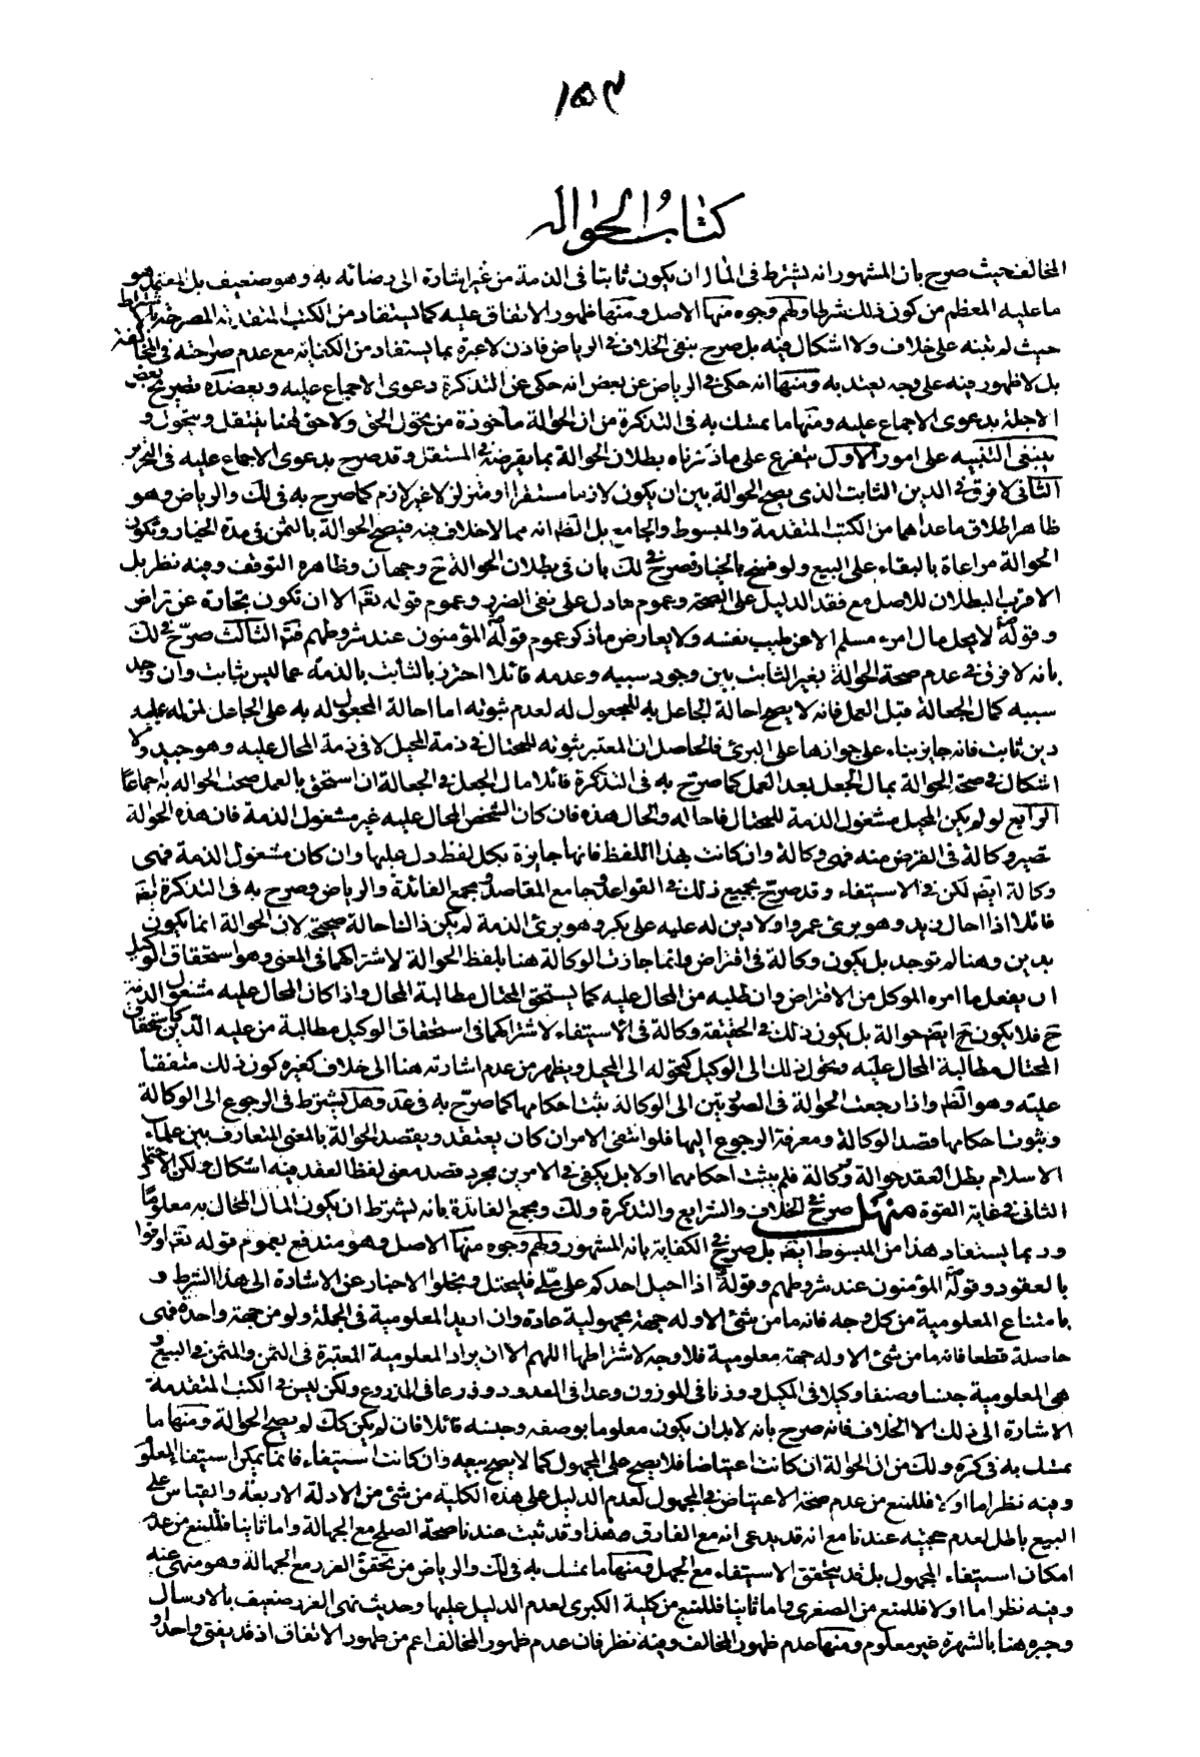 ١٥٣
كتاب الحواله
المخالف حيث صرح بان المشهور انه يشترط فى المال ان يكون ثابتا فى الذمة من غير اشارة الى رضائه به وهو ضعيف بل المعتمد هو
ما عليه المعظم من كون ذلك شرطا ولهم وجوه منها الاصل ومنها ظهور الاتفاق عليه كما يستفاد من الكتب المتقدمة المصرحة باشتراط
حيث لم ينبه على خلاف ولا اشكال فيه بل صرح بنفى الخلاف فى الرياض فاذن لا عبرة بما يستفاد من الكفاية مع عدم صراحته فى المخالفة
بل لا ظهور فيه على وجه يعتد به ومنها انه حكى فى الرياض عن بعض انه حكى عن التذكرة دعوى الاجماع عليه ويعضده تصريح بعض
الاجلة بدعوى الاجماع عليه ومنها ما تمسك به فى التذكرة من ان الحوالة ماخوذة من تحول الحق ولا حق لهنا ينتقل ويتحول و
ينبغى التنبيه على امور الاول يتفرع على ما ذكرناه بطلان الحوالة بما يقرضه فى المستقبل وقد صرح بدعوى الاجماع عليه فى التحرير
الثانى لا فرق فى الدين الثابت الذى يصح الحوالة بين ان يكون لازما مستقرا او متزلزلا غير لازم كما صرح به فى لك والرياض وهو
ظاهر اطلاق ما عداهما من الكتب المتقدمة والمبسوط والجامع بل الظ انه مما لا خلاف فيه فتصح الحوالة بالثمن فى مدة الخيار وتكون
الحوالة مراعاة بالبقاء على البيع ولو فسخ بالخيار فصرح فى لك بان فى بطلان الحوالة ح وجهان وظاهره التوقف وفيه نظر بل
الاقرب البطلان للاصل مع فقد الدليل على الصحة وعموم ما دل على نفى الضرر وعموم قوله تعم الا ان تكون تجارة عن تراض
وقوله لا يحل مال امرء مسلم الا عن طيب نفسه ولا يعارض ما ذكر عموم قوله المؤمنون عند شروطهم فت الثالث صرح فى لك
بانه لا فرق فى عدم صحة الحوالة بغير الثابت بين وجود سببه وعدمه قائلا احترز بالثابت بالذمة عما ليس بثابت وان وجد
سببه كمال الجعالة قبل العمل فانه لا يصح احالة الجاعل به للمجعول له لعدم ثبوته اما احالة المجعول له به على الجاعل لمن له عليه
دين ثابت فانه جايز بناء على جوازها على البرئ فالحاصل ان المعتبر ثبوته للمحتال فى ذمة المحيل لا فى ذمة المحال عليه وهو جيد ولا
اشكال فى صحة الحوالة بمال الجعل بعد العمل كما صرح به فى التذكرة قائلا مال الجعل فى الجعالة ان استحق بالعمل صحت الحواله به اجماعا
الرابع لو لم يكن المحيل مشغول الذمة للمحتال فاحاله والحال هذه فان كان الشخص المحال عليه غير مشغول الذمة فان هذه الحوالة
تصير وكالة فى القرض منه فهى وكالة وان كانت بهذا اللفظ فانها جايزة بكل لفظ دل عليها وان كان مشغول الذمة فهى
وكالة ايضا لكن فى الاستيفاء وقد صرح بجميع ذلك فى القواعد وجامع المقاصد ومجمع الفائدة والرياض وصرح به فى التذكرة ايضا
قائلا اذا احال زيد وهو برئ عمروا ولا دين له عليه على بكر وهو برئ الذمة لم يكن ذلك احالة صحيحة لان الحوالة انما يكون
بدين وهنا لم توجد بل يكون وكالة فى اقتراض وانما جازت الوكالة هنا بلفظ الحوالة لاشتراكهما فى المعنى وهو استحقاق الوكيل
ان يفعل ما امره الموكل من الاقتراض وان طلبه من المحال عليه كما يستحق المحتال مطالبة المحال واذا كان المحال عليه مشغول الذمة
ح فلا يكون ح ايضا حوالة بل يكون ذلك فى الحقيقة وكالة فى الاستيفاء لاشتراكهما فى استحقاق الوكيل مطالبة من عليه الدين كاستحقاق
المحتال مطالبة المحال عليه وتحول ذلك الى الوكيل كتحوله الى المحيل ويظهر من عدم اشارته هنا الى خلاف كغيره كون ذلك متفقا
عليه وهو الظ واذا رجعت الحوالة فى الصورتين الى الوكالة ثبت احكامها كما صرح به فى عد وهل يشترط فى الرجوع الى الوكالة
وثبوت احكامها قصد الوكالة ومعرفة الرجوع اليها فلو انتفى الامران كان يعتقد ويقصد الحوالة بالمعنى المتعارف بين علماء
الاسلام بطل العقد حوالة ووكالة فلم يثبت احكامهما اولا بل يكفى فى الامرين مجرد قصد معنى لفظ العقد فيه اشكال ولكن الاحتمال
الثانى فى غاية القوة منهل صرح فى الخلاف والشرايع والتذكرة ولك ومجمع الفائدة بانه يشترط ان يكون المال المحال به معلوما
وربما يستفاد هذا من المبسوط ايضا بل صرح فى الكفاية بانه المشهور ولهم وجوه منها الاصل وهو مندفع بعموم قوله تعم اوفوا
بالعقود وقوله المؤمنون عند شروطهم وقوله اذا احيل احدكم على ملى فليحتل ويخلوا الاخبار عن الاشارة الى هذا الشرط و
بامتناع المعلومية من كل وجه فانه ما من شئ الا وله جهة مجهولية عادة وان اريد المعلومية فى الجملة ولو من جهة واحدة فهى
حاصلة قطعا فانه ما من شئ الا وله جهة معلومية فلا وجه لاشتراطها اللهم الا ان يراد المعلومية المعتبرة فى الثمن والمثمن فى البيع و
هى المعلومية جنسا وصنفا وكيلا فى المكيل ووزنا فى الموزون وعدا فى المعدود وذرعا فى المزروع ولكن ليس فى الكتب المتقدمة
الاشارة الى ذلك الا الخلاف فانه صرح بانه لا بد ان يكون معلوما بوصفه وجنسه قائلا فان لم يكن كك لم يصح الحوالة ومنها ما
تمسك به فى كره ولك من ان الحوالة ان كانت اعتياضا فلا يصح على المجهول كما لا يصح بيعه وان كانت استيفاء فانما يمكن استيفاء المعلوم
وفيه نظر اما اولا فللمنع من عدم صحة الاعتياض فى المجهول لعدم الدليل على هذه الكلية من شئ من الادلة الاربعة والقياس على
البيع باطل لعدم حجيته عندنا مع انه قد يدعى انه مع الفارق هذا وقد ثبت عندنا صحة الصلح مع الجهالة واما ثانيا فللمنع من عدم
امكان استيفاء المجهول بل قد يتحقق الاستيفاء مع الجهل ومنها ما تمسك به فى لك والرياض من تحقق الغرر مع الجهالة وهو منهى عنه
وفيه نظر اما اولا فللمنع من الصغرى واما ثانيا فللمنع من كلية الكبرى لعدم الدليل عليها وحديث نهى الغرر ضعيف بالارسال
وجبره هنا بالشهرة غير معلوم ومنها عدم ظهور المخالف وفيه نظر فان عدم ظهور المخالف اعم من ظهور الاتفاق اذ قد يفتى واحد او